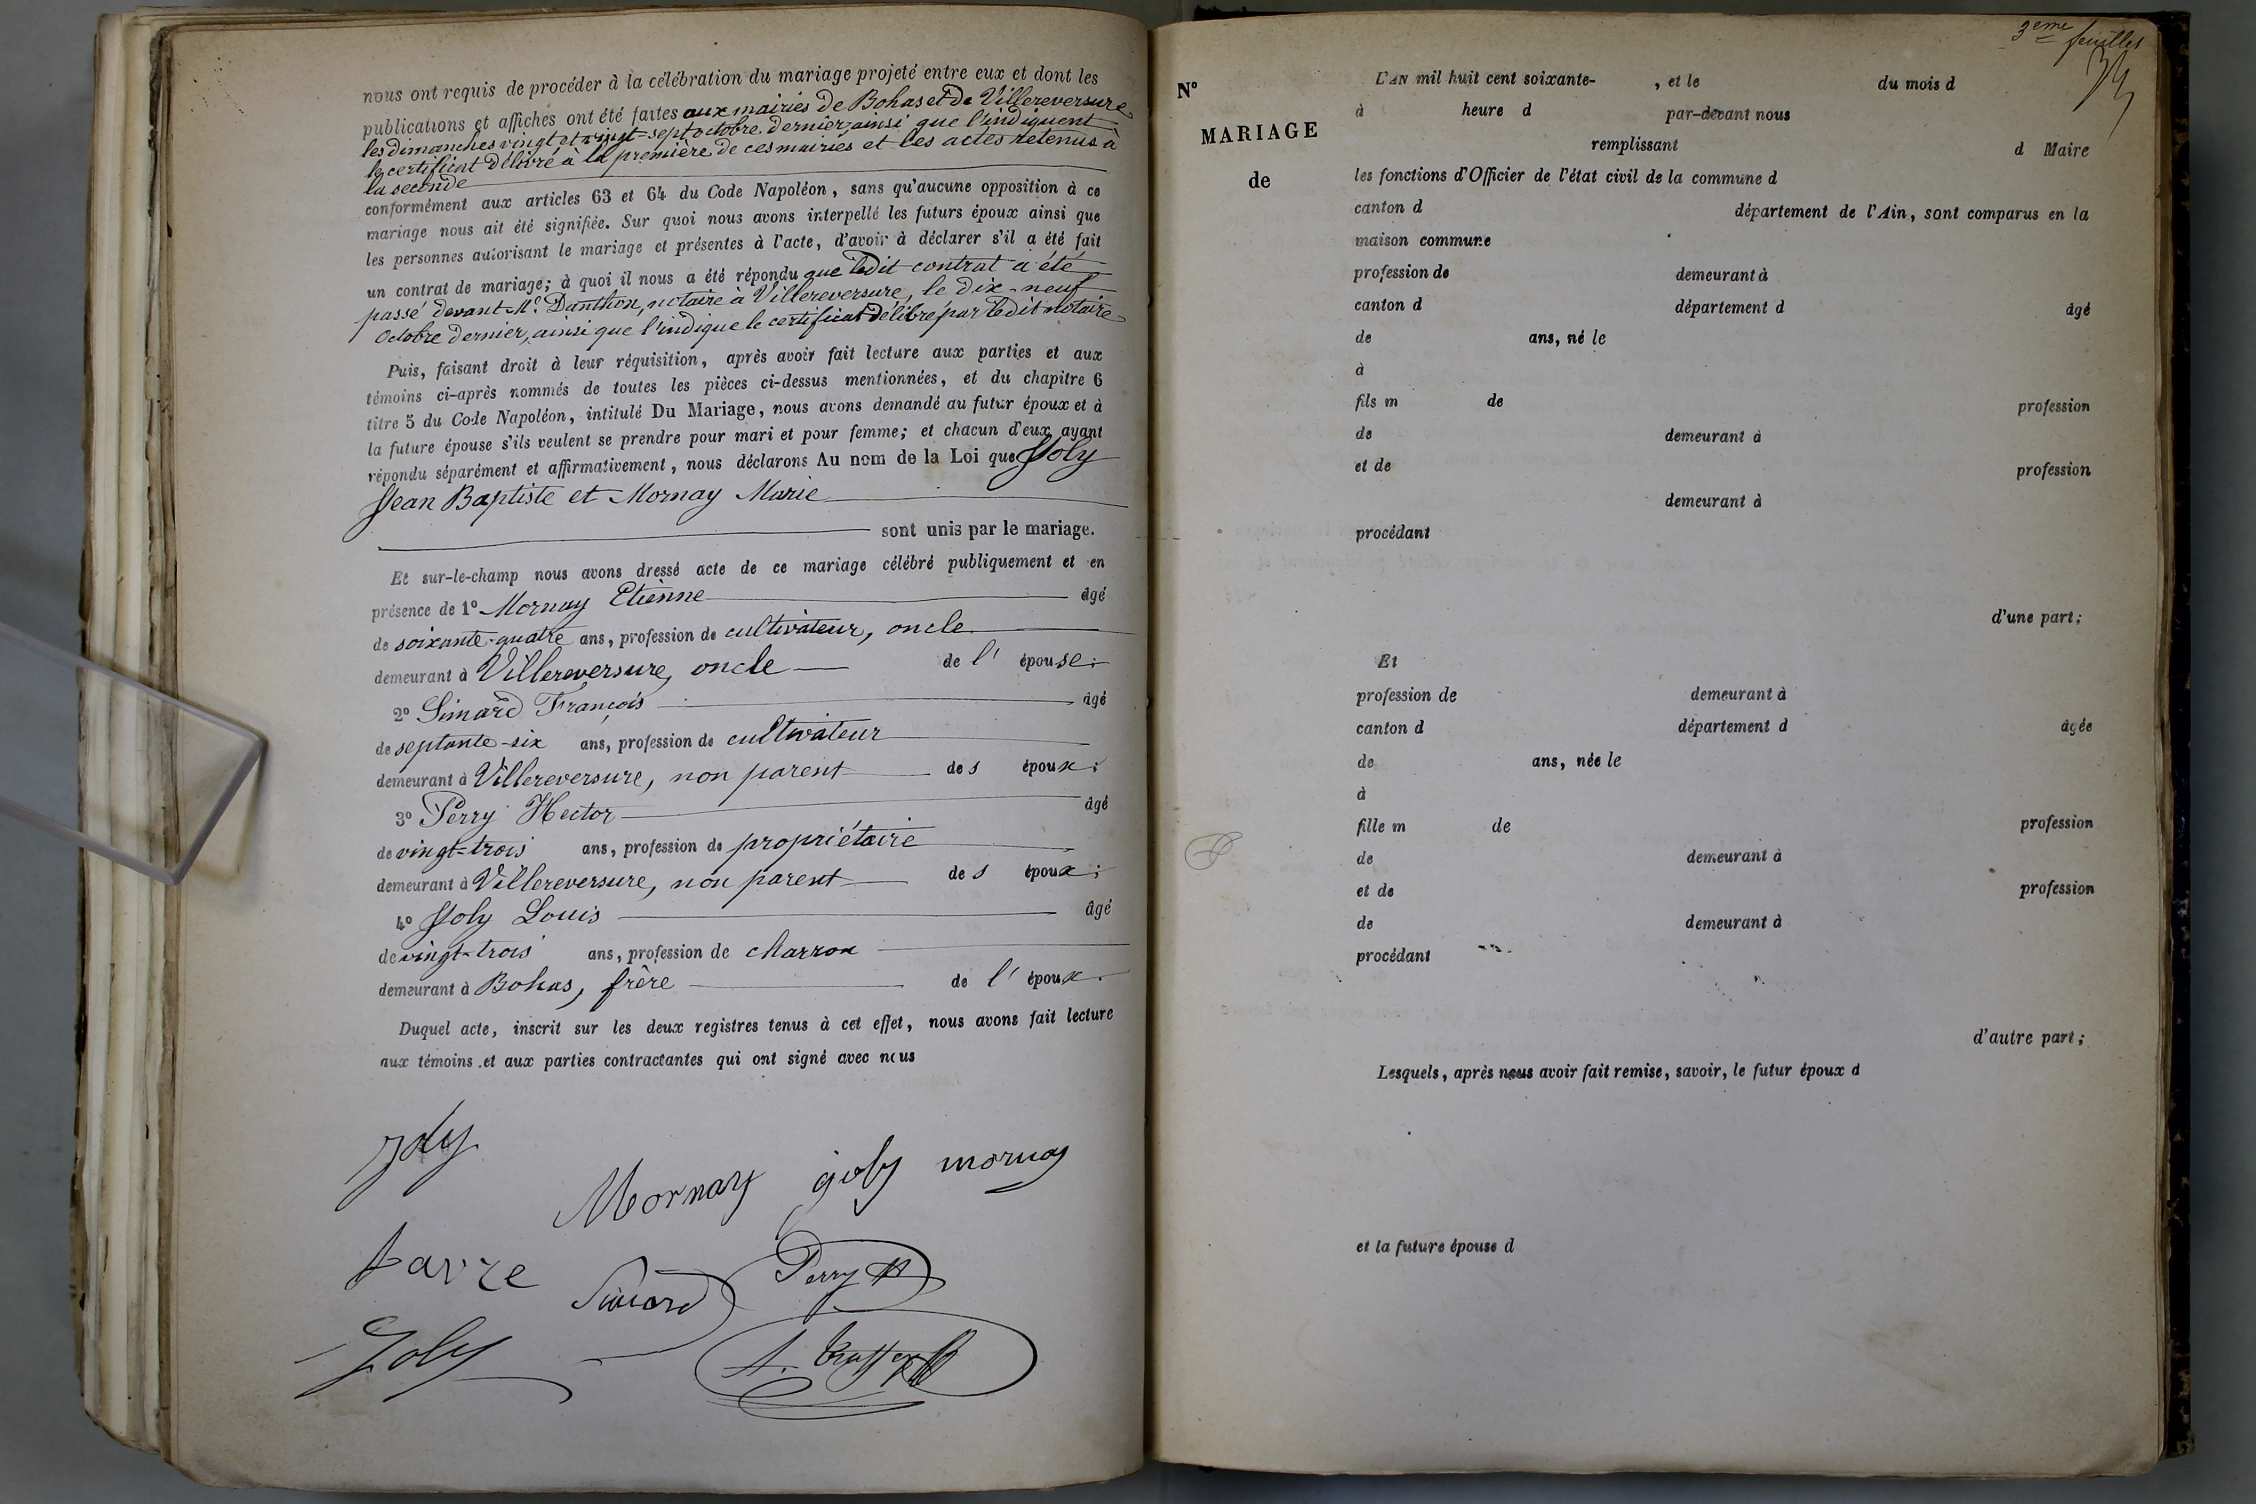 nous ont requis de procéder à la célébration du mariage projeté entre eux et dont les
publications et affiches ont été faites aux mairies de Bohas et de Villereversure,
les dimanches vingt et vingt-sept octobre dernier, ainsi que l'indiquent
le certificat délivré à la première de ces mairies et les actes retenus à
la seconde
conformément aux articles 63 et 64 du Code Napoléon, sans qu'aucune opposition à ce
mariage nous ait été signifiée. Sur quoi nous avons interpellé les futurs époux ainsi que
les personnes autorisant le mariage et présentes à l'acte, d'avoir à déclarer s'il a été fait
un contrat de mariage; à quoi il nous a été répondu que ledit contrat a été
passé devant Me. Danthon, notaire à Villereversure, le dix-neuf
Octobre dernier, ainsi que l'indique le certificat délibré par ledit notaire
Puis, faisant droit à leur réquisition, après avoir fait lecture aux parties et aux
témoins ci-après nommés de toutes les pièces ci-dessus mentionnées, et du chapitre 6
titre 5 du Code Napoléon, intitulé Du Mariage, nous avons demandé au futur époux et à
la future épouse s'ils veulent se prendre pour mari et pour femme; et chacun d'eux ayant
répondu séparément et affirmativement, nous déclarons Au nom de la Loi que Joly
Jean Baptiste et Mornay Marie
sont unis par le mariage.
Et sur-le-champ nous avons dressé acte de ce mariage célébré publiquement et en
présence de 1° Mornay Etienne âgé
de soixante-quatre ans, profession de cultivateur, oncle
demeurant à Villereversure, oncle de l' épouse;
2° Simard François âgé
de septante-six ans, profession de cultivateur
demeurant à Villereversure, non parent des époux;
3° Perry Hector âgé
de vingt-trois ans, profession de propriétaire
demeurant à Villereversure, non parent des époux;
4° Joly Louis âgé
de vingt-trois ans, profession de charron
demeurant à Bohas, frère de l' époux.
Duquel acte, inscrit sur les deux registres tenus à cet effet, nous avons fait lecture
aux témoins et aux parties contractantes qui ont signé avec nous
Joly
Mornay joly mornay
favre Simard Perry H
Joly
3eme feuillet
N°
MARIAGE
de
L'AN mil huit cent soixante- , et le du mois d
à heure d par-devant nous
remplissant d Maire
les fonctions d'Officier de l'état civil de la commune d
canton d département de l'Ain, sont comparus en la
maison commune
profession de demeurant à
canton d département d âgé
de ans, né le
à
fils m de profession
de demeurant à
et de profession
demeurant à
procédant
d'une part;
Et
profession de demeurant à
canton d département d âgée
de ans, née le
à
fille m de profession
de demeurant à
et de profession
de demeurant à
procédant
d'autre part;
Lesquels, après nous avoir fait remise, savoir, le futur époux d
et la future épouse d